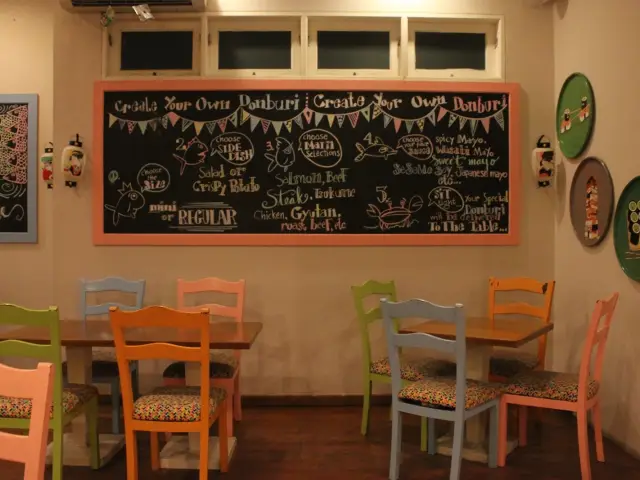 Create Your Own Donburi! Create Your Own Donburi
1
Choose the Size
mini or REGULAR
2
Choose SIDE DISH
Salad or
Crispy Potato
3
Choose MAIN Selections
Salmon, Beef
Steak, Tsukune
Chicken, Gyutan,
roast beef, etc
4
Choose your
Spicy Mayo,
Wasabi Mayo
Sweet mayo
Japanese mayo
5
Your Special
Donburi
will be delivered
To The Table...